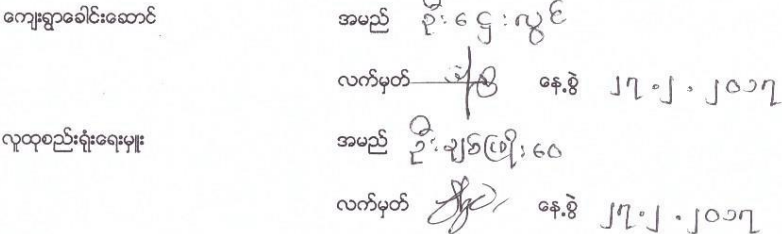 ကျေးရွာခေါင်းဆောင် အမည် ဦးဌေးလွင်
လက်မှတ် နေ့စွဲ ၂၇.၂.၂၀၁၇
လူထုစည်းရုံးရေးမှူး အမည် ဦးချစ်ဖြိုးဝေ
လက်မှတ် နေ့စွဲ ၂၇.၂.၂၀၁၇